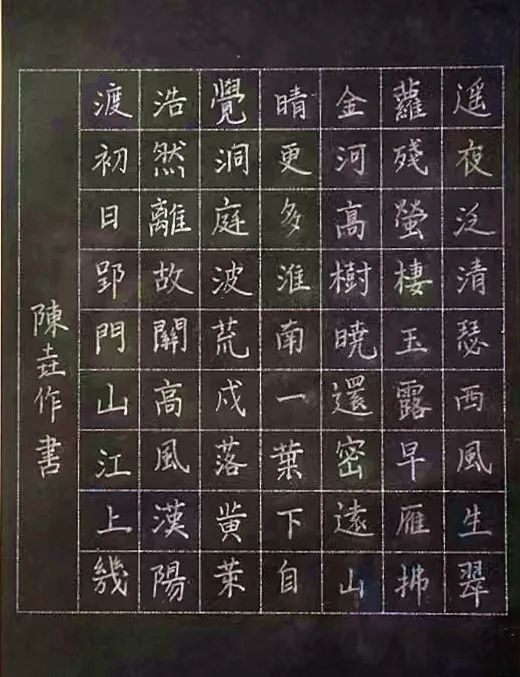 遥夜泛清瑟西風生翠
蘿殘螢棲玉露早雁拂
金河高樹曉還密遠山
晴更多淮南一葉下自
覺洞庭波荒戍落黄葉
浩然離故關高風漢陽
渡初日郢門山江上幾
陳垚作書